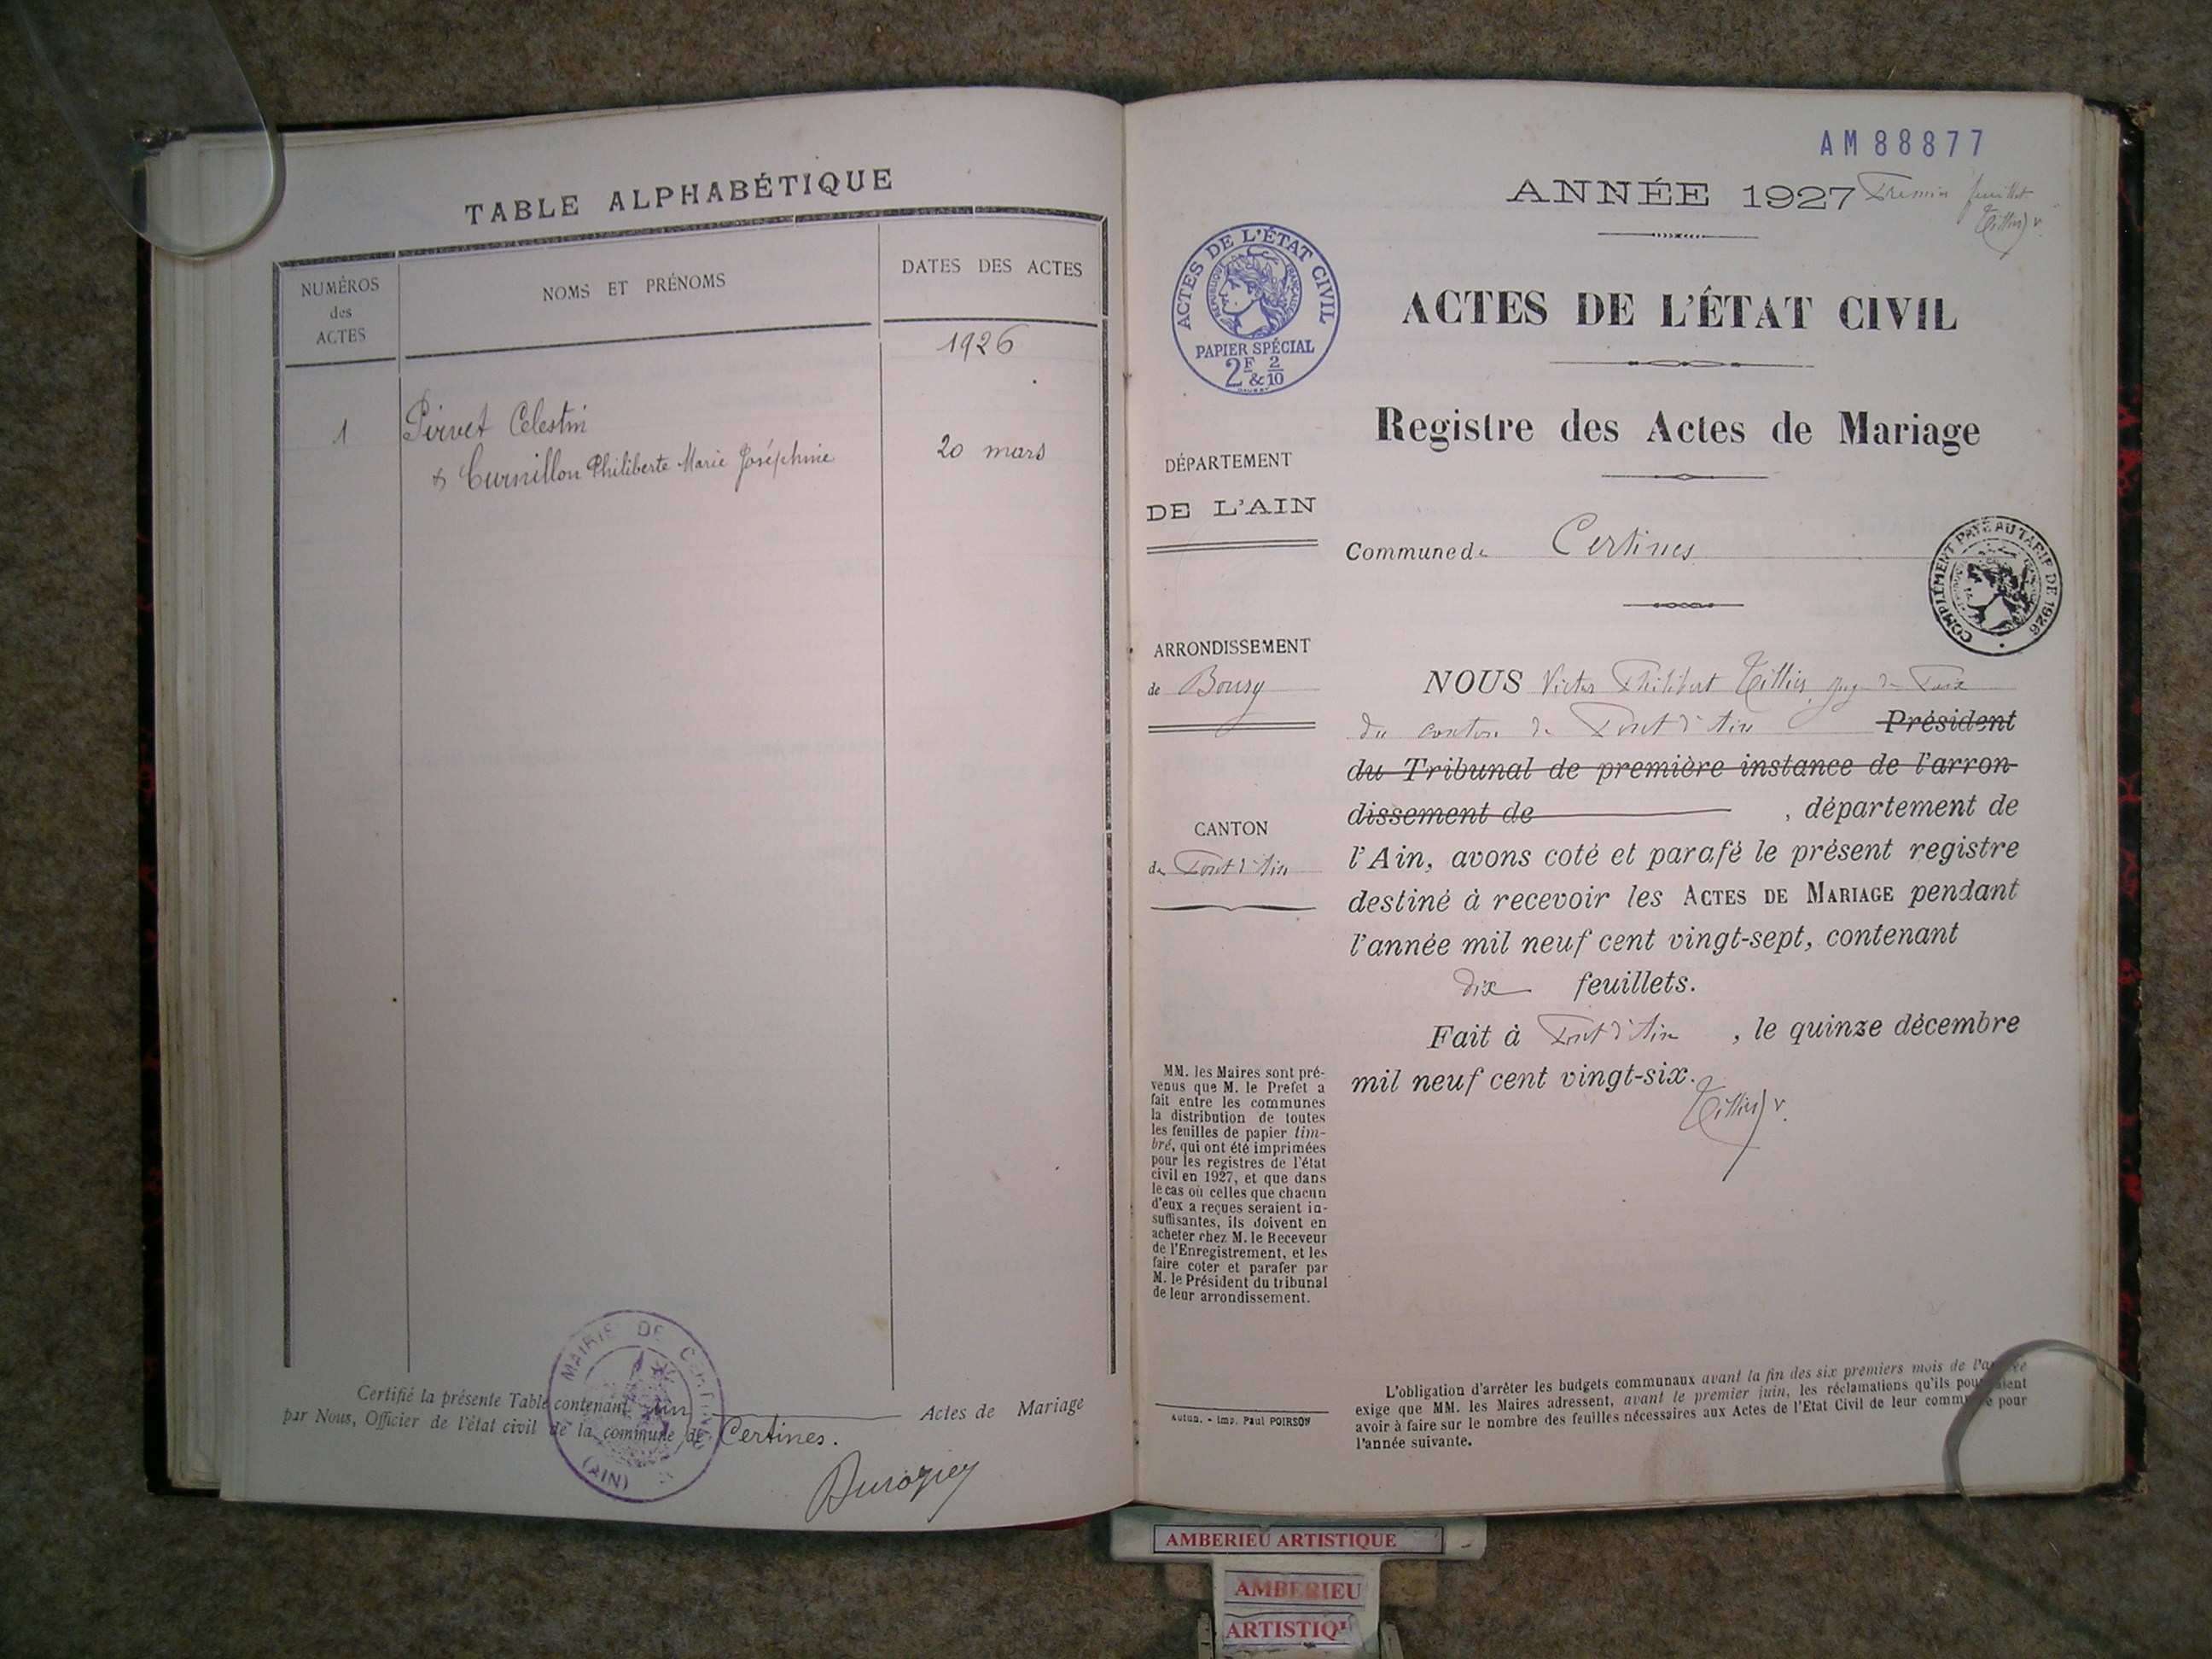 TABLE ALPHABÉTIQUE
NUMÉROS
des
ACTES
NOMS ET PRÉNOMS
DATES DES ACTES
1926
1
Pirvet Celestin
& Curnillon Philiberte Marie Joséphine
20 mars
Certifié la présente Table contenant un Actes de Mariage
par Nous, Officier de l'état civil de la commune de Certines.
MAIRIE DE CERTINES
(AIN)
AM 88877
ANNÉE 1927
Premier feuillet
Tillier V.
ACTES DE L'ÉTAT CIVIL
RÉPUBLIQUE FRANÇAISE
PAPIER SPÉCIAL
2F & 2/10
ACTES DE L'ÉTAT CIVIL
Registre des Actes de Mariage
DÉPARTEMENT
DE L'AIN
Commune de Certines
COMPLÉMENT PAYÉ AU TARIF DE 1926
ARRONDISSEMENT
de Bourg
CANTON
de Pont d'Ain
NOUS Victor Philibert Tillier juge de Paix
du canton de Pont d'Ain Président
du Tribunal de première instance de l'arron-
dissement de , département de
l'Ain, avons coté et parafé le présent registre
destiné à recevoir les ACTES DE MARIAGE pendant
l'année mil neuf cent vingt-sept, contenant
dix feuillets.
Fait à Pont d'Ain , le quinze décembre
mil neuf cent vingt-six.
Tillier V.
MM. les Maires sont pré-
venus que M. le Prefet a
fait entre les communes
la distribution de toutes
les feuilles de papier tim-
bré, qui ont été imprimées
pour les registres de l'état
civil en 1927, et que dans
le cas où celles que chacun
d'eux a reçues seraient in-
suffisantes, ils doivent en
acheter chez M. le Receveur
de l'Enregistrement, et les
faire coter et parafer par
M. le Président du tribunal
de leur arrondissement.
Autun. - Imp. Paul POIRSON
L'obligation d'arrêter les budgets communaux avant la fin des six premiers mois de l'année
exige que MM. les Maires adressent, avant le premier juin, les réclamations qu'ils pourraient
avoir à faire sur le nombre des feuilles nécessaires aux Actes de l'Etat Civil de leur commune pour
l'année suivante.
AMBERIEU ARTISTIQUE
AMBERIEU
ARTISTIQU